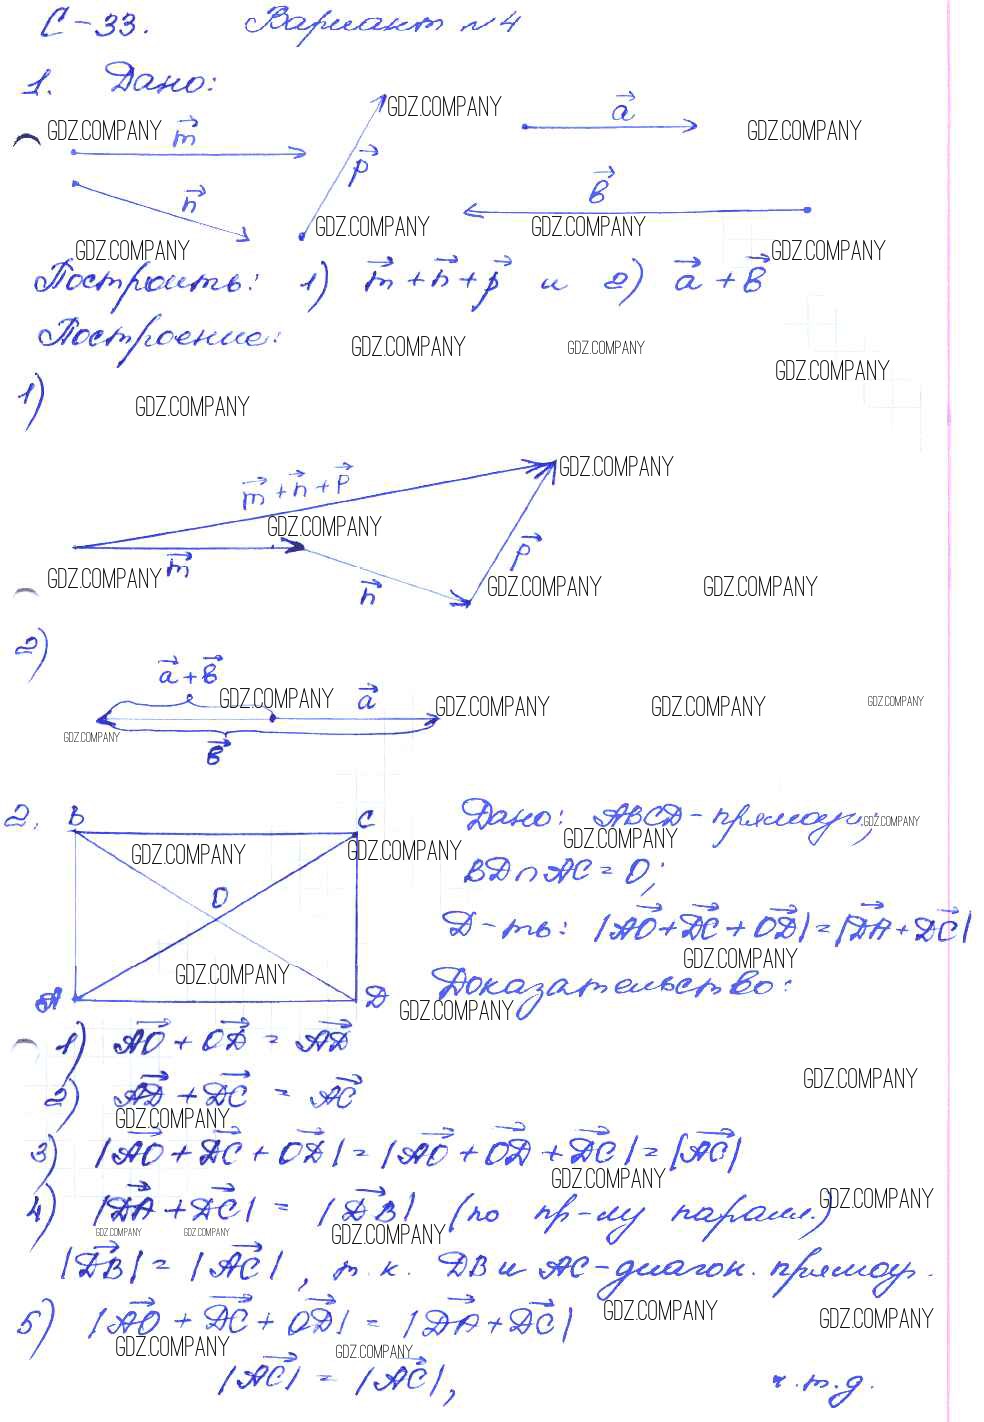 С-33. Вариант №4
1. Дано:
GDZ.COMPANY
GDZ.COMPANY m⃗ p⃗ a⃗ GDZ.COMPANY
n⃗ b⃗
GDZ.COMPANY GDZ.COMPANY
GDZ.COMPANY GDZ.COMPANY
Построить: 1) m⃗ + n⃗ + p⃗ и 2) a⃗ + b⃗
Построение:
GDZ.COMPANY GDZ.COMPANY
GDZ.COMPANY
1)
GDZ.COMPANY
m⃗ + n⃗ + p⃗ GDZ.COMPANY
GDZ.COMPANY
GDZ.COMPANY m⃗ p⃗
n⃗ GDZ.COMPANY GDZ.COMPANY
2)
a⃗ + b⃗
GDZ.COMPANY a⃗ GDZ.COMPANY GDZ.COMPANY GDZ.COMPANY
GDZ.COMPANY
b⃗
2. B C Дано: ABCD – прямоуг.; GDZ.COMPANY
GDZ.COMPANY GDZ.COMPANY GDZ.COMPANY
BD∩AC = O;
O
Д-ть: |AO⃗ + DC⃗ + OD⃗| = |DA⃗ + DC⃗|
GDZ.COMPANY GDZ.COMPANY
A D Доказательство:
GDZ.COMPANY
1) AO⃗ + OD⃗ = AD⃗
GDZ.COMPANY
2) AD⃗ + DC⃗ = AC⃗
GDZ.COMPANY
3) |AO⃗ + DC⃗ + OD⃗| = |AO⃗ + OD⃗ + DC⃗| = |AC⃗|
GDZ.COMPANY
4) |DA⃗ + DC⃗| = |DB⃗| (по пр-лу паралл.) GDZ.COMPANY
GDZ.COMPANY GDZ.COMPANY GDZ.COMPANY
|DB⃗| = |AC⃗|, т.к. DB и AC – диагон. прямоуг.
5) |AO⃗ + DC⃗ + OD⃗| = |DA⃗ + DC⃗| GDZ.COMPANY GDZ.COMPANY
GDZ.COMPANY GDZ.COMPANY
|AC⃗| = |AC⃗|, ч.т.д.